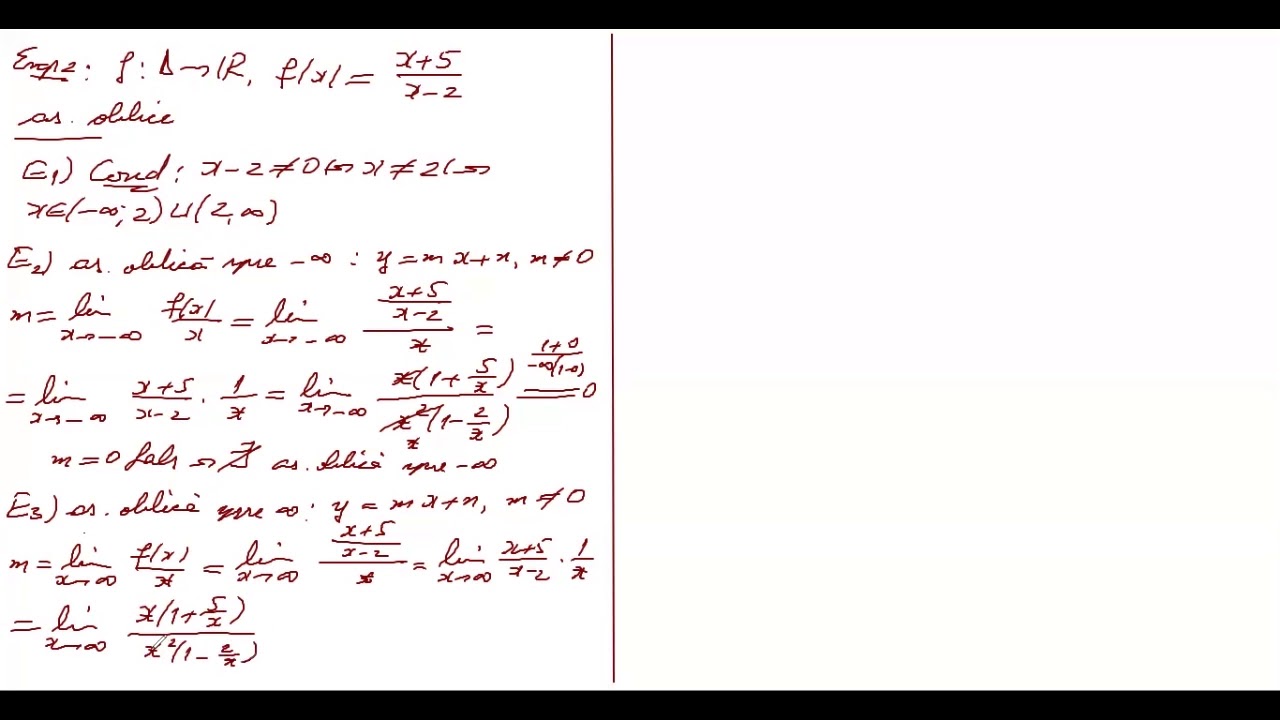 Exp 2: f: D → ℝ, f(x) = (x+5)/(x-2)
as. oblice
E₁) Cond: x-2 ≠ 0 ⇔ x ≠ 2 ⇔
x ∈ (-∞; 2) ∪ (2, ∞)
E₂) as. oblică spre -∞ : y = mx+n, m ≠ 0
m = lim_{x→-∞} f(x)/x = lim_{x→-∞} ((x+5)/(x-2))/x =
= lim_{x→-∞} (x+5)/(x-2) · 1/x = lim_{x→-∞} x(1+5/x)/(x²(1-2/x)) =^{(1+0)/(-∞(1-0))} 0
m = 0 fals ⇒ ∄ as. oblică spre -∞
E₃) as. oblică spre ∞ : y = mx+n, m ≠ 0
m = lim_{x→∞} f(x)/x = lim_{x→∞} ((x+5)/(x-2))/x = lim_{x→∞} (x+5)/(x-2) · 1/x
= lim_{x→∞} x(1+5/x)/(x²(1-2/x))